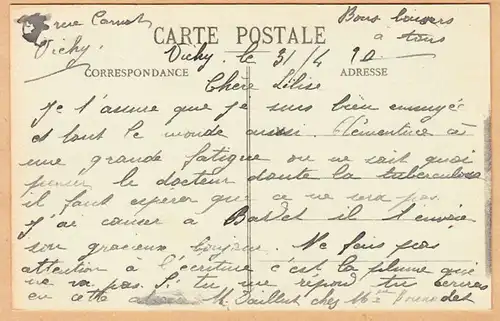 rue Carnot
Vichy.
CARTE POSTALE
Bons baisers
à tous
Vichy. le 31/4
CORRESPONDANCE
ADRESSE
Chere Lélise
Je t'assure que je suis bien ennuyée
et tout le monde aussi. Clémentine à
une grande fatigue on ne sait quoi
penser le docteur doute la tuberculose
il faut esperer que ce ne sera pas.
J'ai causer a Barlet il t'envoie
son gracieux bonjour. Ne fais pas
attention à l'écriture c'est la plume qui
ne va pas. Si tu me répond tu écriras
en cette chez Mme